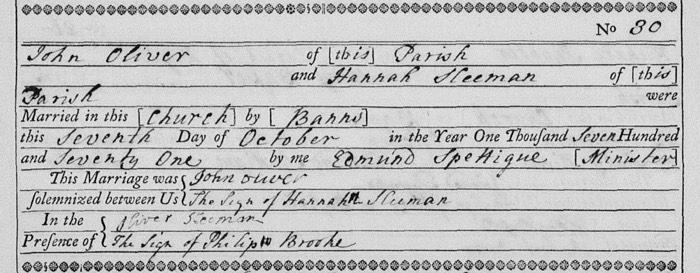 No 30
John Oliver of [this] Parish
and Hannah Sleeman of [this]
Parish were
Married in this [Church] by [Banns]
this Seventh Day of October in the Year One Thousand Seven Hundred
and Seventy One by me Edmund Spettigue [Minister]
This Marriage was John Oliver
solemnized between Us The Sign of Hannah Sleeman
In the Oliver Sleeman
Presence of The Sign of Philip Brooke